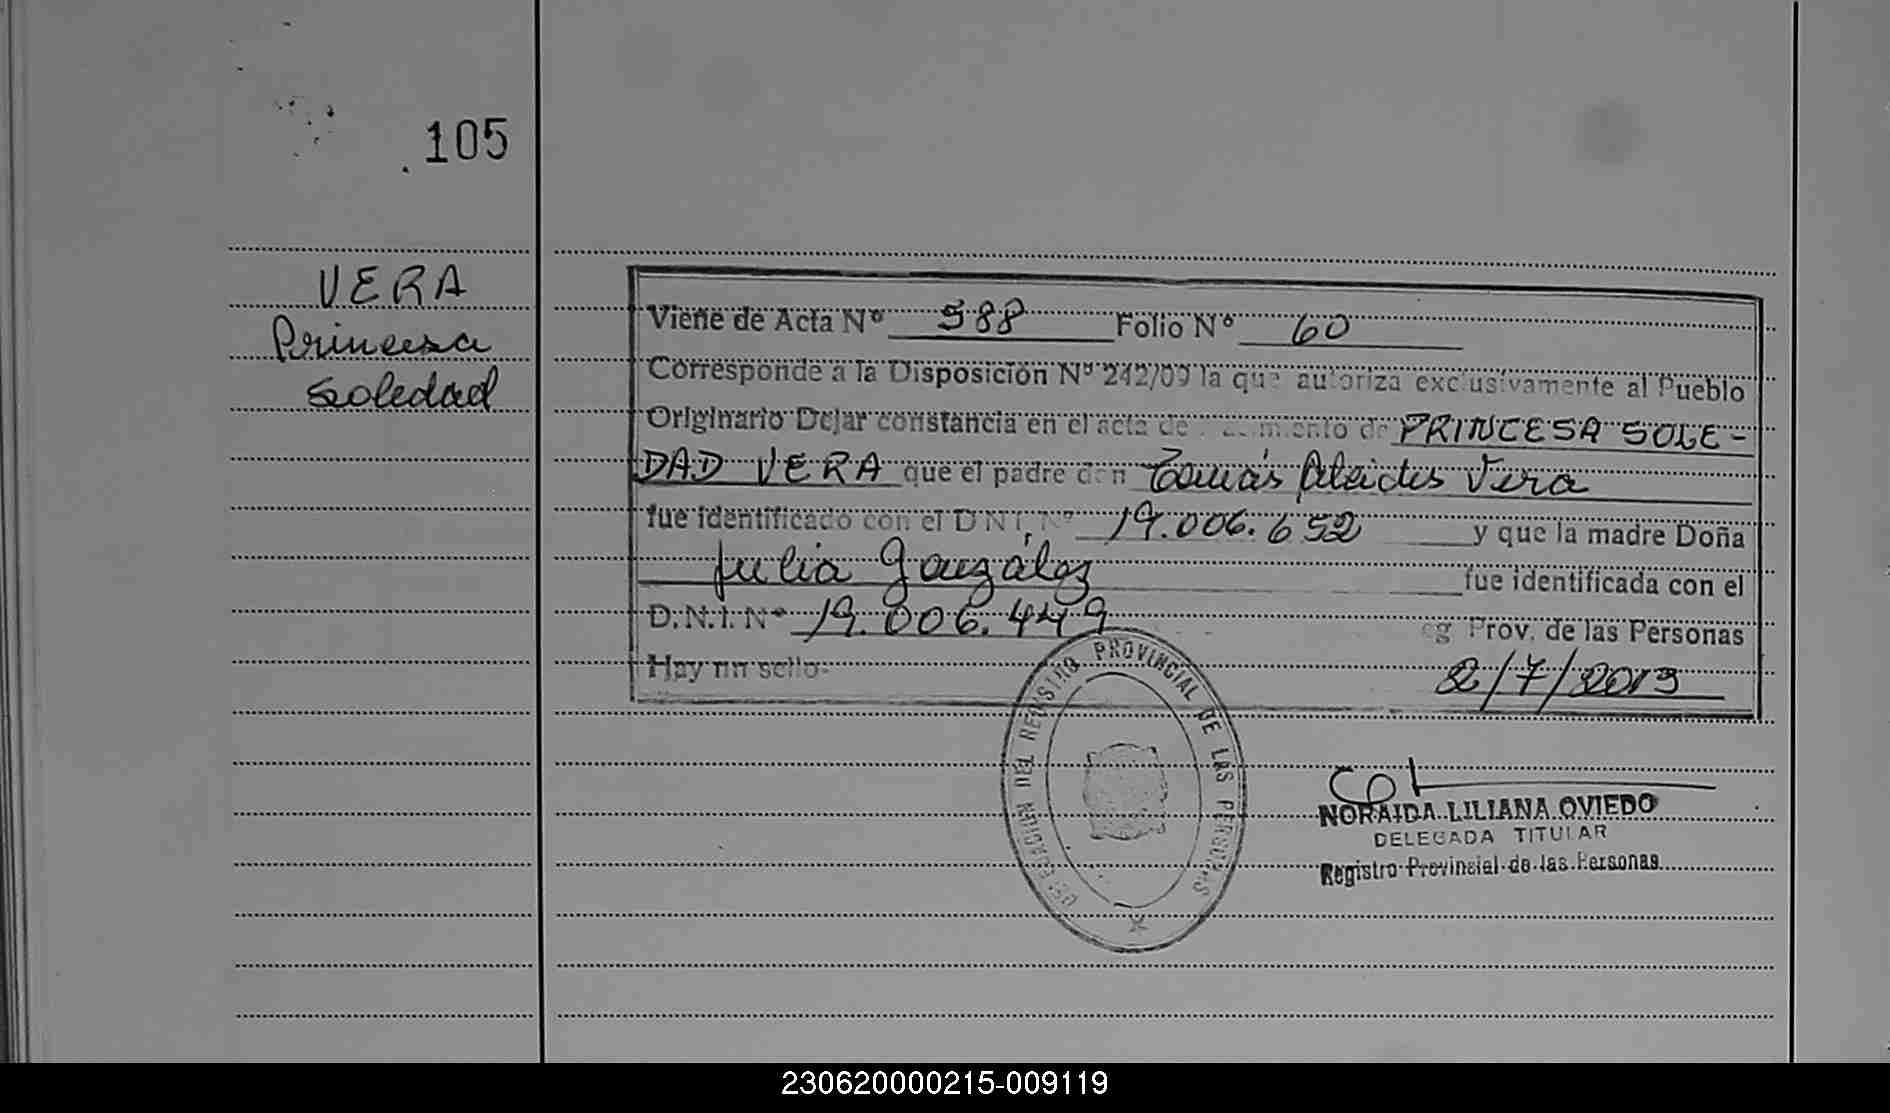 105
VERA
Princesa
Soledad
Viene de Acta Nº 588 Folio Nº 60
Corresponde a la Disposición Nº 242/09 la que autoriza exclusivamente al Pueblo
Originario Dejar constancia en el acta de nacimiento de PRINCESA SOLE-
DAD VERA que el padre don Tomás Alcides Vera
fue identificado con el D N I, Nº 19.006.652 y que la madre Doña
Julia González fue identificada con el
D.N.I. Nº 19.006.449 eg Prov. de las Personas
Hay un sello- 2/7/2013
DELEGACION DEL REGISTRO PROVINCIAL DE LAS PERSONAS
NORAIDA LILIANA OVIEDO
DELEGADA TITULAR
Registro Provincial de las Personas
230620000215-009119